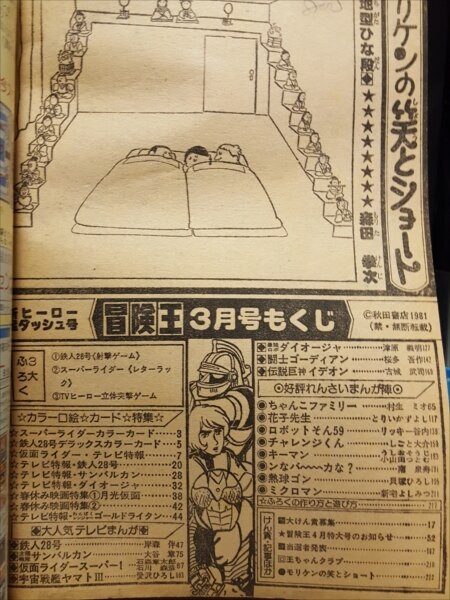 モリケンの笑とショート
地型ひな段
★★★★★★★★
森田 拳次
もりた けんじ
新ヒーロー
大ダッシュ号
冒険王
3月号もくじ
©秋田書店1981
(禁・無断転載)
3大
ふろく
①鉄人28号《射撃ゲーム》
②スーパーライダー《レターラック》
③TVヒーロー立体突撃ゲーム
☆カラー口絵☆カード☆特集☆
☆スーパーライダーカラーカード 3
☆鉄人28号デラックスカラーカード 5
☆仮面ライダー・テレビ特報 7
☆テレビ特報・鉄人28号 20
☆テレビ特報・サンバルカン 28
☆テレビ特報・ダイオージャ 32
☆春休み映画特集①月光仮面 38
☆春休み映画特集② 42
☆テレビ特報・ゴールドライタン 44
◆大人気テレビまんが◆
鉄人28号 伴 47
サンバルカン 大谷 章 75
仮面ライダースーパー1
石川 森彦 87
宇宙戦艦ヤマトIII ひろし
ダイオージャ 津原 義明 127
闘士ゴーディアン 桜多 吾作 142
伝説巨神イデオン 古城 武司
◎好評れんさいまんが陣◎
ちゃんこファミリー 村生 ミオ 65
花子先生 とりいかずよし
ロボットそん59 リッキー谷内
チャレンジくん しのごと大介
キーマン
ンなバ〜〜カな? 南
熱球ゴン 貝塚ひろし
ミクロマン
☆ふろくの作り方と遊び方
けん賞・記事ほか
大けん賞募集 17
★冒険王4月特大号のお知らせ 52
当選者発表
王ちゃんクラブ
◉モリケンの笑とショート